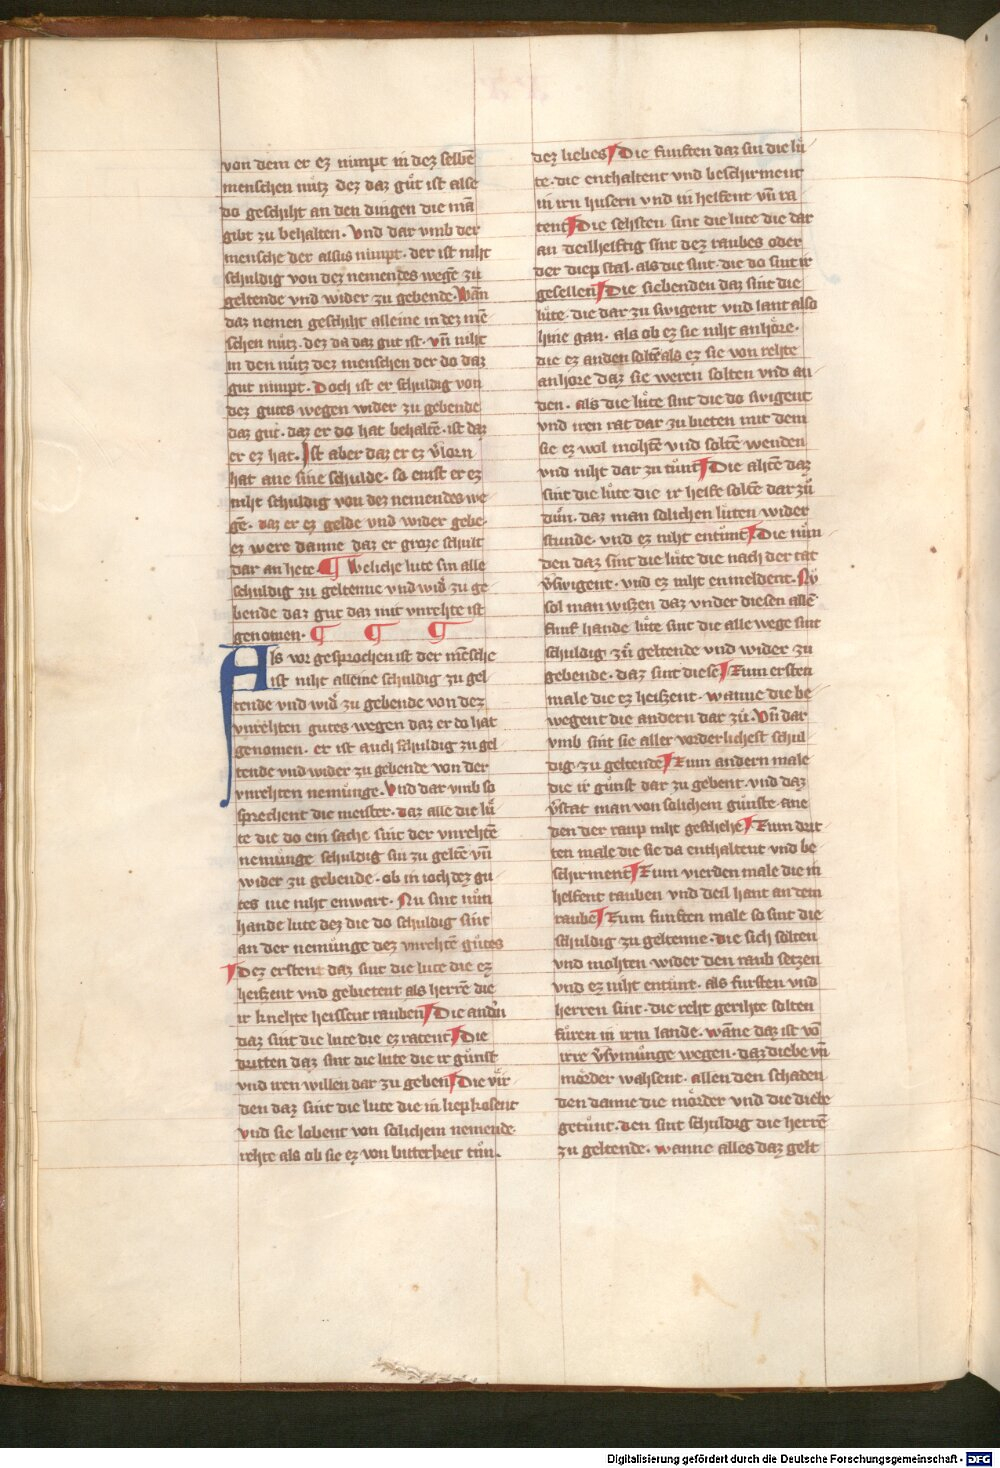 von dem er ez nimpt in dez selbē
menschen nuͦtz dez daz guͦt ist alse
do geschiht an den dingen die mā
gibt zu behalten. Vnd dar vmb der
mensche der alsus nimpt. der ist niht
schuldig von dez nemendes wegē zu
geltende vnd wider zu gebende. Wan̄
daz nemen geschiht alleine in dez mē
schen nuͦtz. dez da daz gut ist. vn̄ niht
in den nuͦtz dez menschen der do daz
gut nimpt. Doch ist er schuldig von
dez gutes wegen wider zu gebende
daz gut. daz er do hat behaltē. ist daz
er ez hat. Ist aber daz er ez v̄lorn
hat ane sine schulde. so enist er ez
niht schuldig von dez nemendes we
gē. daz er ez gelde vnd wider gebe.
ez were danne daz er groze schult
dar an hete. ¶ Weliche lute sin alle
schuldig zu geltenne vnd wid̄ zu ge
bende daz gut daz mit vnrehte ist
genomen. ¶ ¶ ¶
Als vor gesprochen ist der mēsche
ist niht alleine schuldig zu gel
tende vnd wid̄ zu gebende von dez
vnrehten gutes wegen daz er do hat
genomen. er ist auch schuldig zu gel
tende vnd wider zu gebende von der
vnrehten nemunge. Vnd dar vmb so
sprechent die meister. daz alle die luͤ
te die do ein sache sint der vnrehtē
nemuͦnge schuldig sin zu geltē vn̄
wider zu gebende. ob in ioch dez gu
tes nie niht enwart. Nu sint nuͦn
hande lute dez die do schuldig sint
an der nemuͦnge dez vnrehtē guͦtes
¶ Dez ersten daz sint die lute die ez
heizzent vnd gebietent als herrē die
ir knehte heissent rauben ¶ Die and̄n
daz sint die lute die ez ratent ¶ Die
dritten daz sint die lute die ir guͦnst
vnd iren willen dar zu geben ¶ Die vir
den daz sint die lute die in liepkosent
vnd sie lobent von solichem nemende.
rehte als ob sie ez von biterkeit tuͦn.
dez liebes ¶ Die funften daz sin die luͤ
te. die enthaltent vnd beschirment
in irn husern vnd in helfent vn̄ ra
tent ¶ Die sehsten sint die lute die dar
an deilhelftig sint dez raubes oder
der diepstal. als die sint. die do sint ir
gesellen ¶ Die siebenden daz sint die
luͤte. die dar zu swigent vnd lant also
hine gan. als ob ez sie niht anhoͤre.
die ez anden soltē als ez sie von rehte
anhore daz sie weren solten vnd an
den. als die luͤte sint die do swigent
vnd iren rat dar zu bieten mit dem
sie ez wol mohtē vnd soltē wenden
vnd niht dar zu tuͦnt ¶ Die ahtē daz
sint die luͤte die ir helfe soltē dar zuͦ
duͦn. daz man solichen luͤten wider
stunde. vnd ez niht entuͦnt ¶ Die nuͦn
den daz sint die luͤte die nach der tat
v̄swigent. vnd ez niht enmeldent. Nuͦ
sol man wiszen daz vnder diesen allē
funf hande luͤte sint die alle wege sint
schuldig zuͦ geltende vnd wider zu
gebende. daz sint diese ¶ Zum ersten
male die ez heiszent. wanne die be
wegent die andern dar zuͦ. Vn̄ dar
vmb sint sie aller vorderlichest schul
dig zu geltende ¶ Zum andern male
die ir guͦnst dar zu gebent. vnd daz
v̄stat man von solichem guͦnste. ane
den der raup niht geschehe ¶ Zum drit
ten male die sie da enthaltent vnd be
schirment ¶ Zum vierden male die in
helfent rauben vnd deil hant an dem
raube ¶ Zum funften male so sint die
schuldig zu geltenne. die sich solten
vnd mohten wider den raub setzen
vnd ez niht entuͦnt. als fursten vnd
herren sint. die reht gerihte solten
fuͤren in irm lande. wāne daz ist vō
irre v̄symuͦnge wegen. daz diebe vn̄
moͤrder wahsent. allen den schaden
den danne die moͤrder vnd die diebe
getuͦnt. den sint schuldig die herrē
zu geltende. wanne alles daz gelt
Digitalisierung gefördert durch die Deutsche Forschungsgemeinschaft - DFG